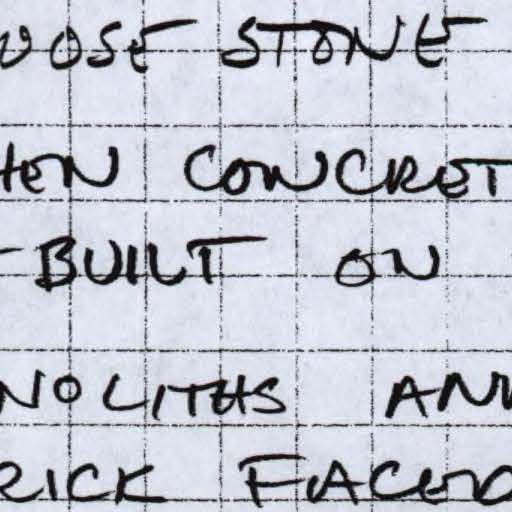 OOSE STONE
HEN CONCRET
-BUILT ON
NOLITHS AN
RICK FACED